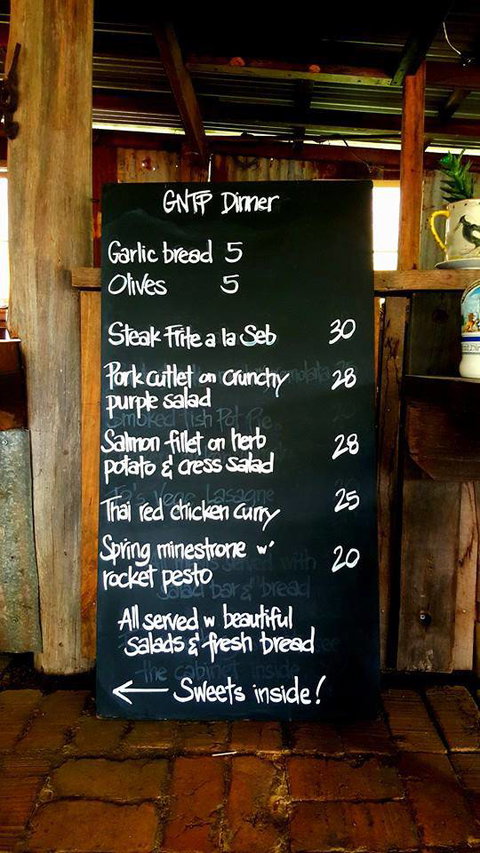 GNTP Dinner
Garlic bread 5
Olives 5
Steak Frite a la Seb 30
Pork cutlet on crunchy 28
purple salad
Salmon fillet on herb 28
potato & cress salad
Thai red chicken curry 25
Spring minestrone w' 20
rocket pesto
All served w beautiful
salads & fresh bread
← Sweets inside!